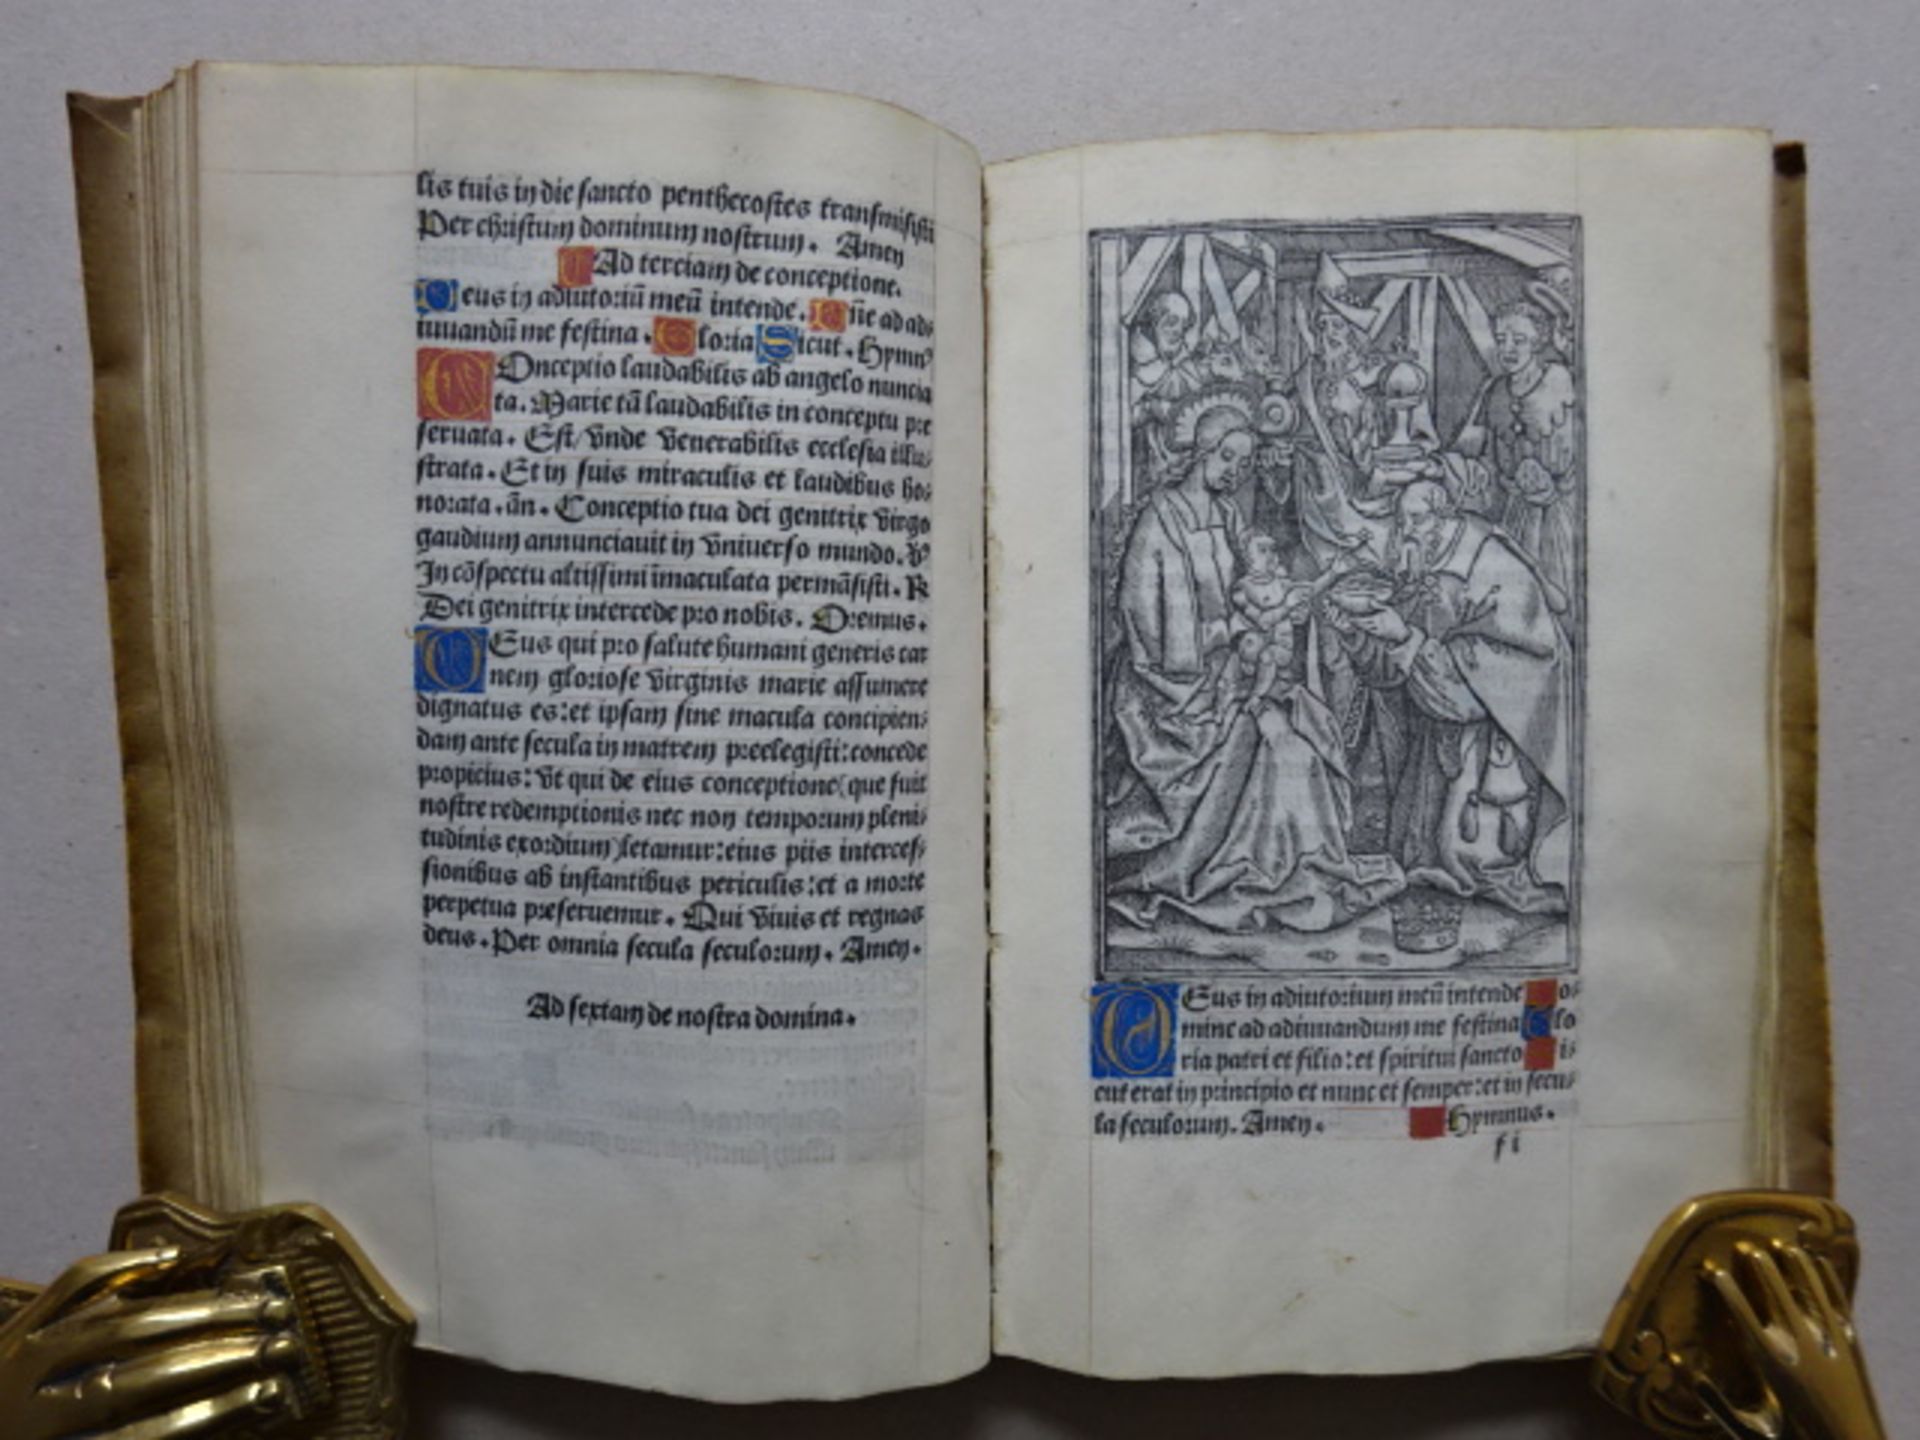 lis tuis in die sancto penthecostes transmisisti
Per christum dominum nostrum. Amen
Ad terciam de conceptione.
Deus in adiutoriū meū intende. Dñe ad ad-
iuuandū me festina. Gloria Sicut. Hymnꝰ
COnceptio laudabilis ab angelo nuncia
ta. Marie tā laudabilis in conceptu pre
seruata. Est/ vnde venerabilis ecclesia illu-
strata. Et in suis miraculis et laudibus ho-
norata. añ. Conceptio tua dei genitrix virgo
gaudium annunciauit in vniuerso mundo. ℣
In cōspectu altissimi īmaculata permāsisti. ℟
Dei genitrix intercede pro nobis. Oremus.
DEus qui pro salute humani generis car
nem gloriose virginis marie assumere
dignatus es: et ipsam sine macula concipien-
dam ante secula in matrem preelegisti: concede
propicius: vt qui de eius conceptione (que fuit
nostre redemptionis nec non temporum pleni-
tudinis exordium) letamur: eius piis interces-
sionibus ab instantibus periculis: et a morte
perpetua preseruemur. Qui viuis et regnas
deus. Per omnia secula seculorum. Amen.
Ad sextam de nostra domina.
DEus in adiutorium meū intende Do-
mine ad adiuuandum me festina Glo
ria patri et filio: et spiritui sancto Si
cut erat in principio et nunc et semper: et in secu-
la seculorum. Amen. Hymnus.
f i